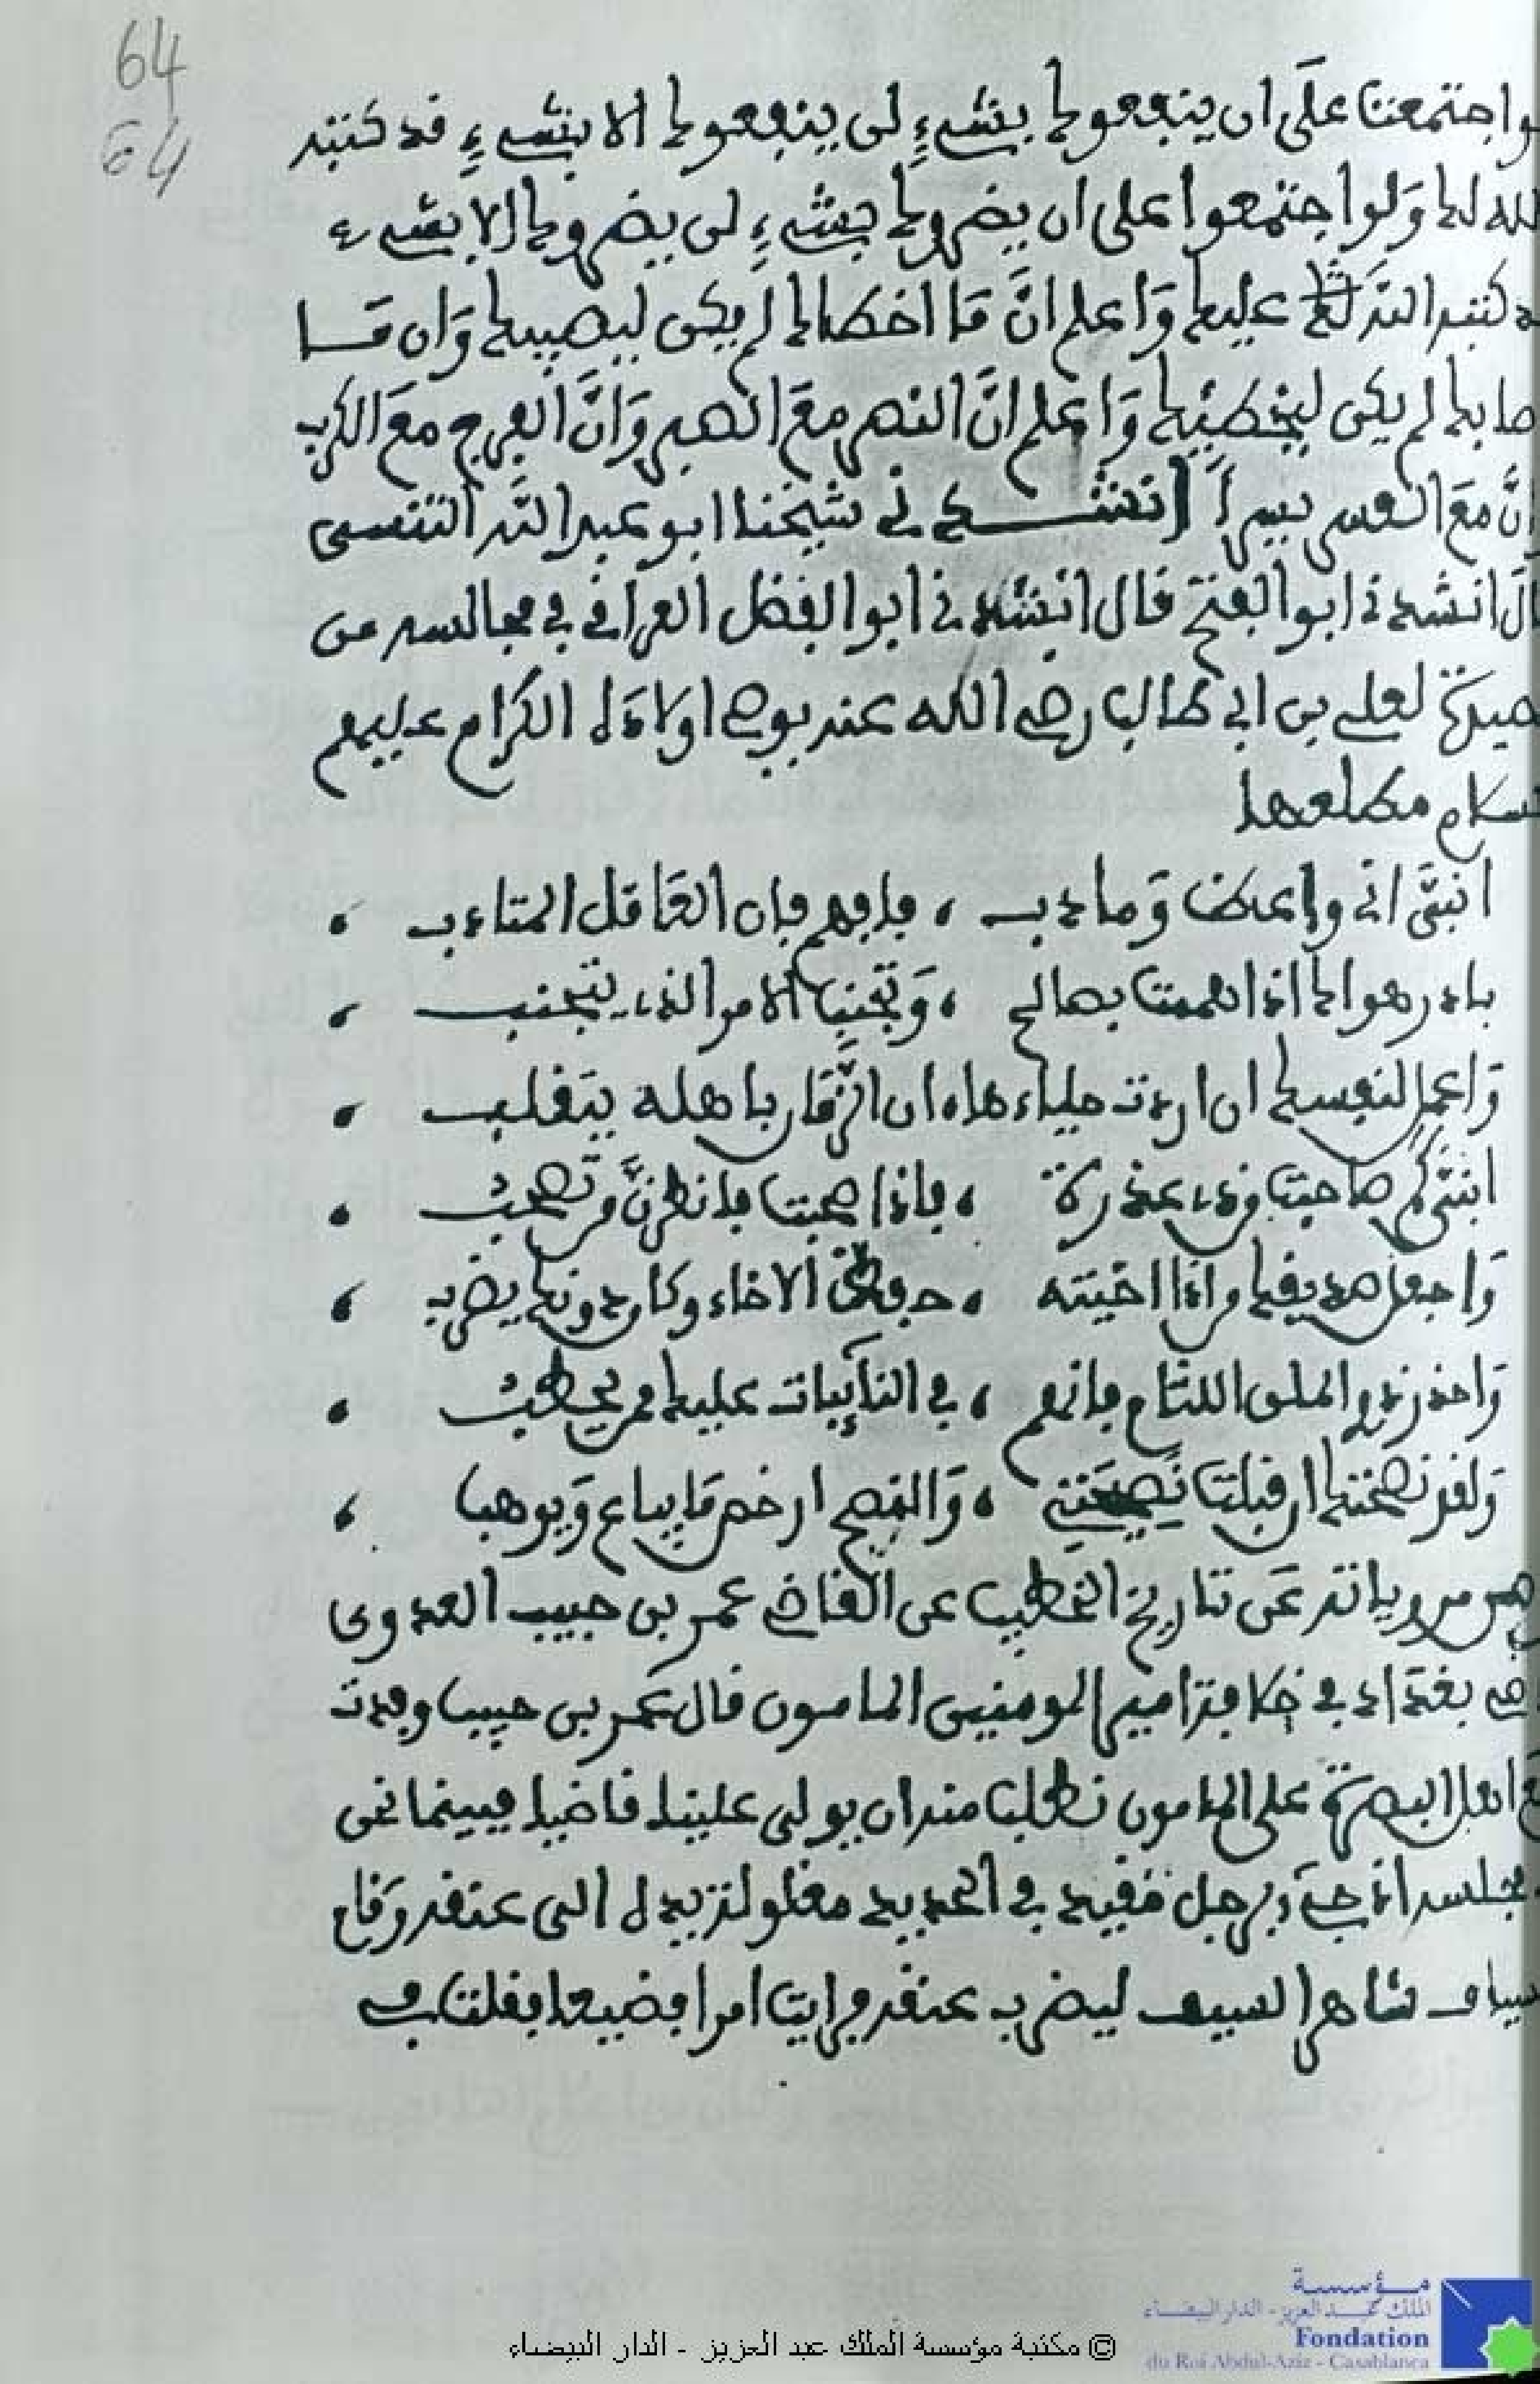 64
64
واجتمعت على ان ينفعوك بشيءٍ لن ينفعوك الا بشيءٍ قد كتبه
لله لك وَلو اجتمعوا على ان يضروك بشيءٍ لن يضروك الا بشيء
كتبه الله عليك وَاعلم انَّ مَا اخطاك لم يكن ليصيبك وَان مَا
صابك لم يكن ليخطئك وَاعلم انَّ النصر مَعَ الصبر وَانَّ الفرج مَعَ الكرب
انَّ مَعَ العسر يسراً انشدني شيخنا ابو عبد الله التنسى
انشدنى ابو الفتح قال انشدنى ابو الفضل العراقي في مجالسه من
لعلي بن ابي طالب رضي الله عنه يوصي اولاده الكرام عليهم
السلام مطلعها
ابنيَّ اني واعظ وَمادب ، فافهم فان العَاقل المتادب ،
بادر هواك اذا هممت بصالح ، وَتجنب الامر الذي يتجنب ،
وَاعمل لنفسك ان اردت حباءها، ان الزَّمَان باهله يتقلب ،
ابنيَّ كم صاحبت من ذي عذرة ، فاذا صحبت فانظرنَّ من تصحب ،
وَاجعل صديقك من اذا اخيته ، حفظ الاخاء وكان دونك يضرب ،
وَاحذر ذوي الملق اللئام فانهم ، في النائبات عليك ممن يحطب ،
وَلقد نصحتك ان قبلت نَصيحَتي ، وَالنصح ارخص مَا يباع وَيوهب ،
من مروياته عَن تاريخ الخطيب عن القاضي عمر بن حبيب العدوى
بغدَاد في خلافة امير المومنين المامون قال عمر بن حبيب وفدت
اهل البصرة على المامون نطلب منه ان يولى علينا قاضيا فبينما نحن
مجلسه اذ جيءَ برجل مقيد في الحديد مغلولة يده الى عنقه وَقام
سياف شاهر السيف ليضرب عنقه فرايت امرا فضيعا فقلت في
مؤسسة
الملك عبد العزيز - الدار البيضاء
Fondation
du Roi Abdul-Aziz - Casablanca
© مكتبة مؤسسة الملك عبد العزيز - الدار البيضاء